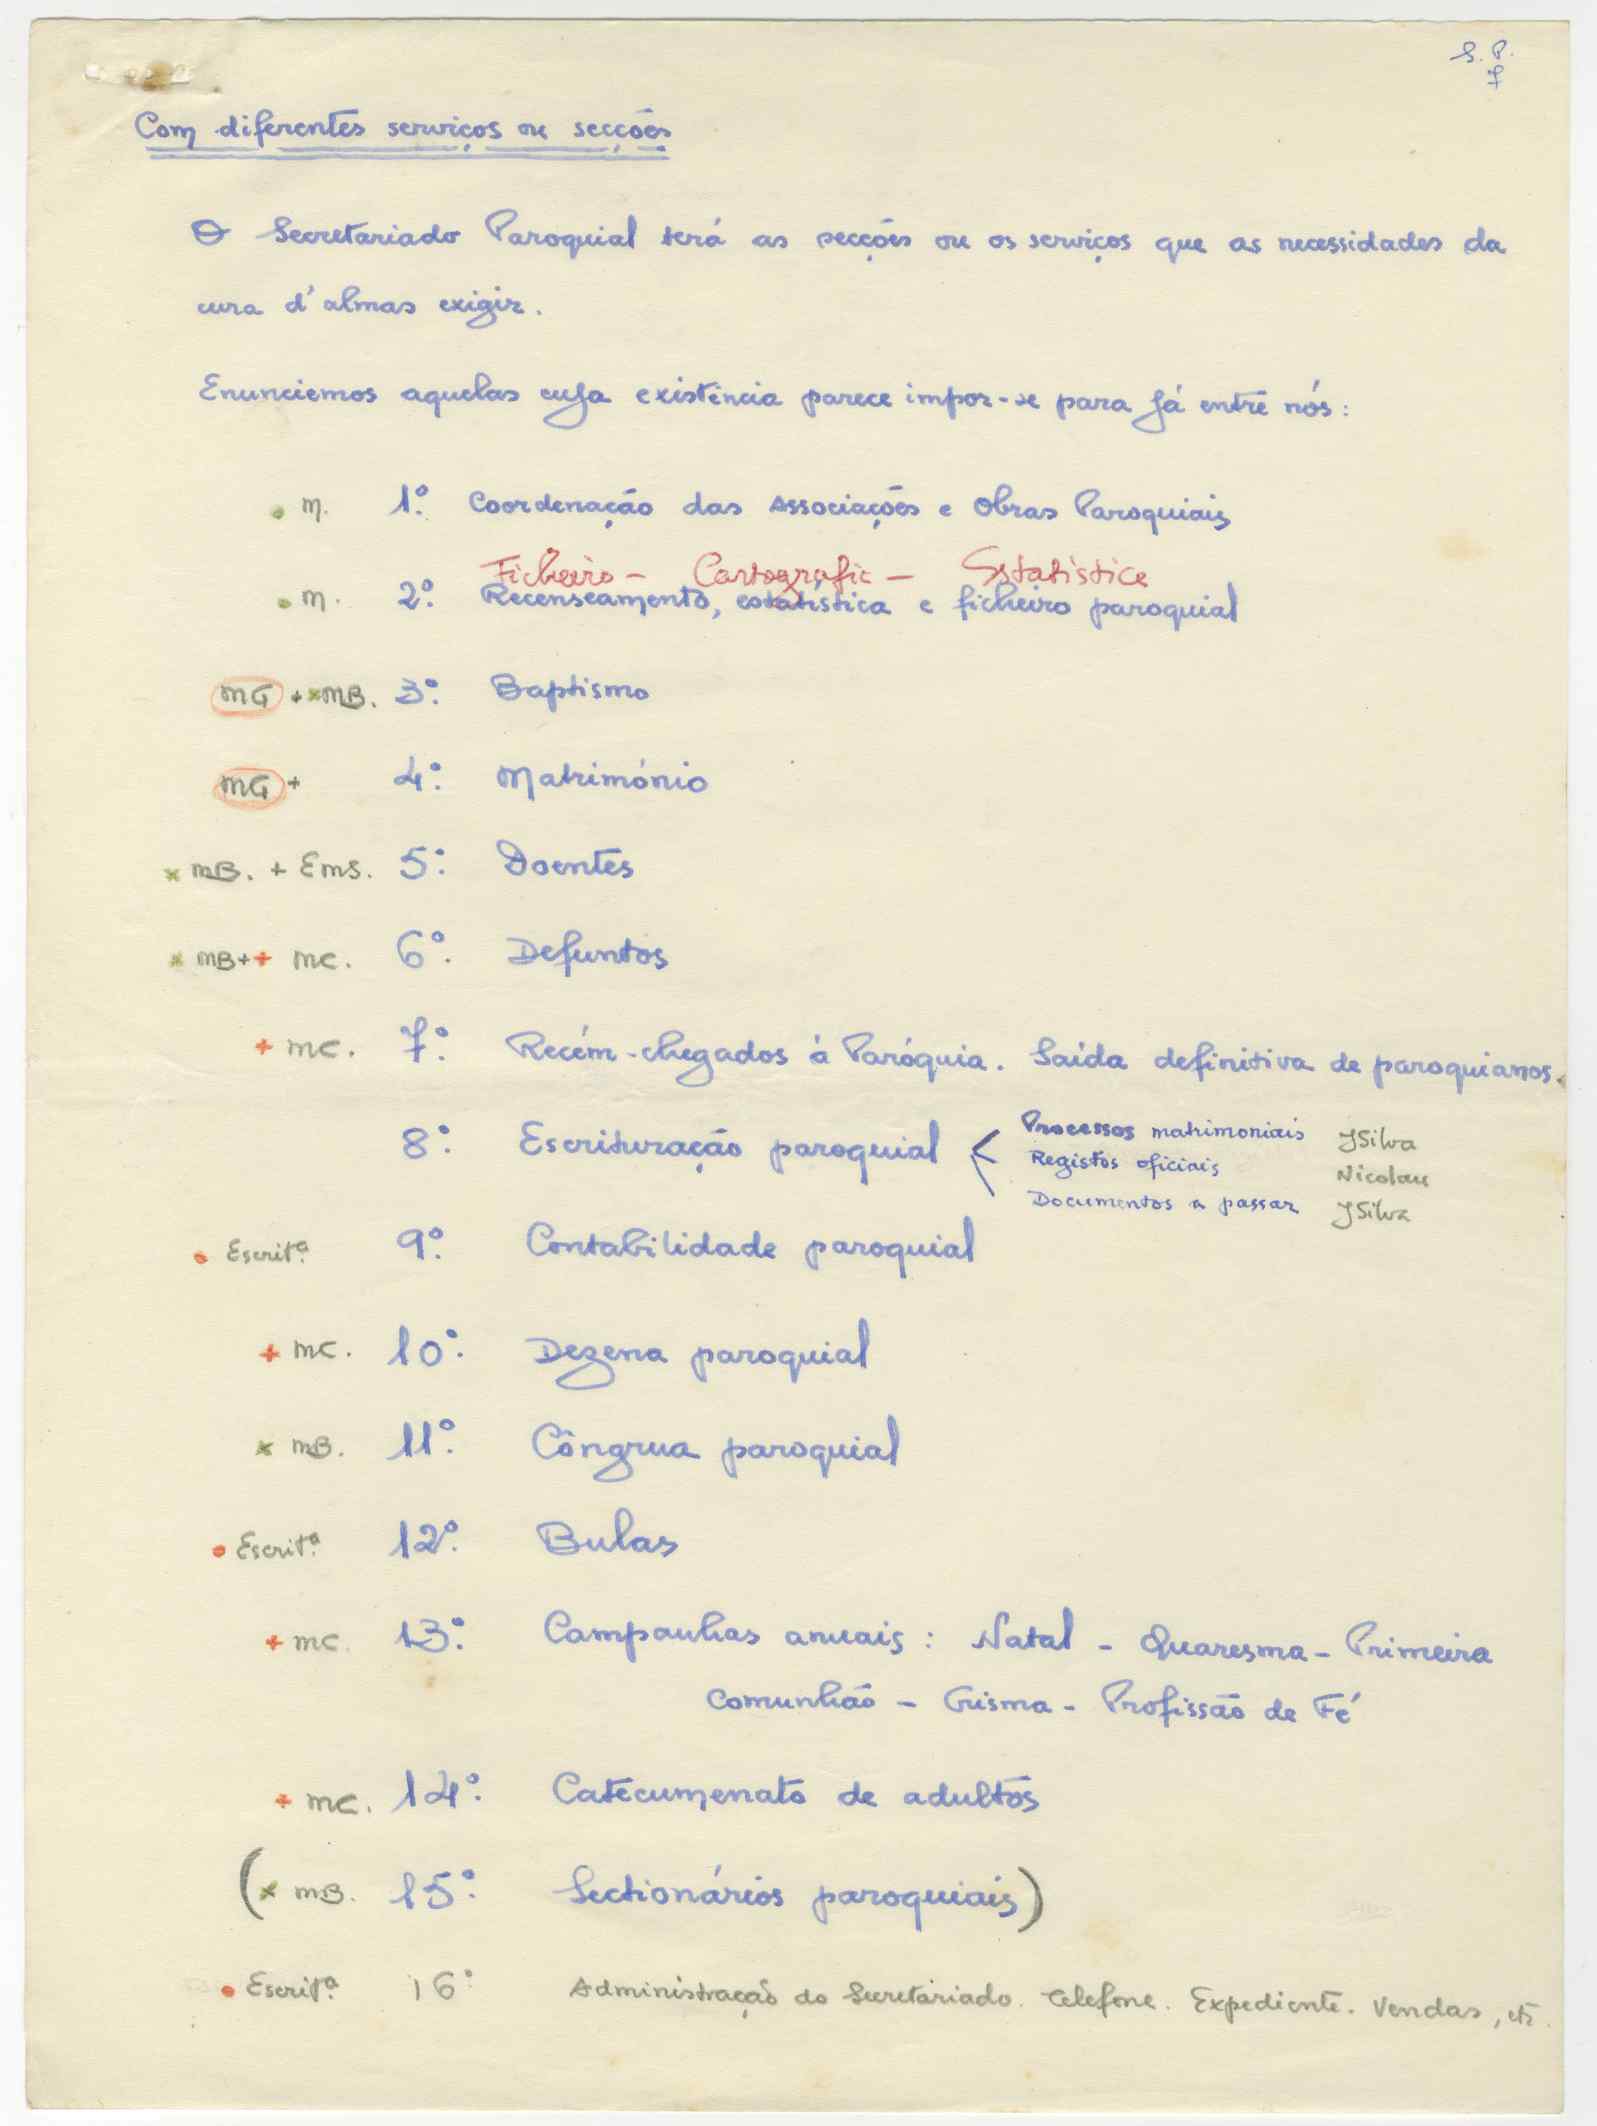 S. P.
7
Com diferentes serviços ou secções
O Secretariado Paroquial terá as secções ou os serviços que as necessidades da
cura d'almas exigir.
Enunciemos aquelas cuja existência parece impor-se para já entre nós:
• M. 1º. Coordenação das Associações e Obras Paroquiais
Ficheiro - Cartografic - Estatistice
• M. 2º. Recenseamento, estatística e ficheiro paroquial
MG + x MB. 3º. Baptismo
MG + 4º. Matrimónio
x MB. + EMS. 5º. Doentes
x MB + + MC. 6º. Defuntos
+ MC. 7º. Recém-chegados à Paróquia. Saída definitiva de paroquianos.
8º. Escrituração paroquial < Processos matrimoniais JSilva
Registos oficiais Nicolau
Documentos a passar JSilva
• Escritª. 9º. Contabilidade paroquial
+ MC. 10º. Dezena paroquial
x MB. 11º. Côngrua paroquial
• Escritª. 12º. Bulas
+ MC. 13º. Campanhas anuais: Natal - Quaresma - Primeira
Comunhão - Crisma - Profissão de Fé
+ MC. 14º. Catecumenato de adultos
(x MB. 15º. Sectionários paroquiais)
• Escritª. 16º Administração do Secretariado. Telefone. Expediente. Vendas, etc.